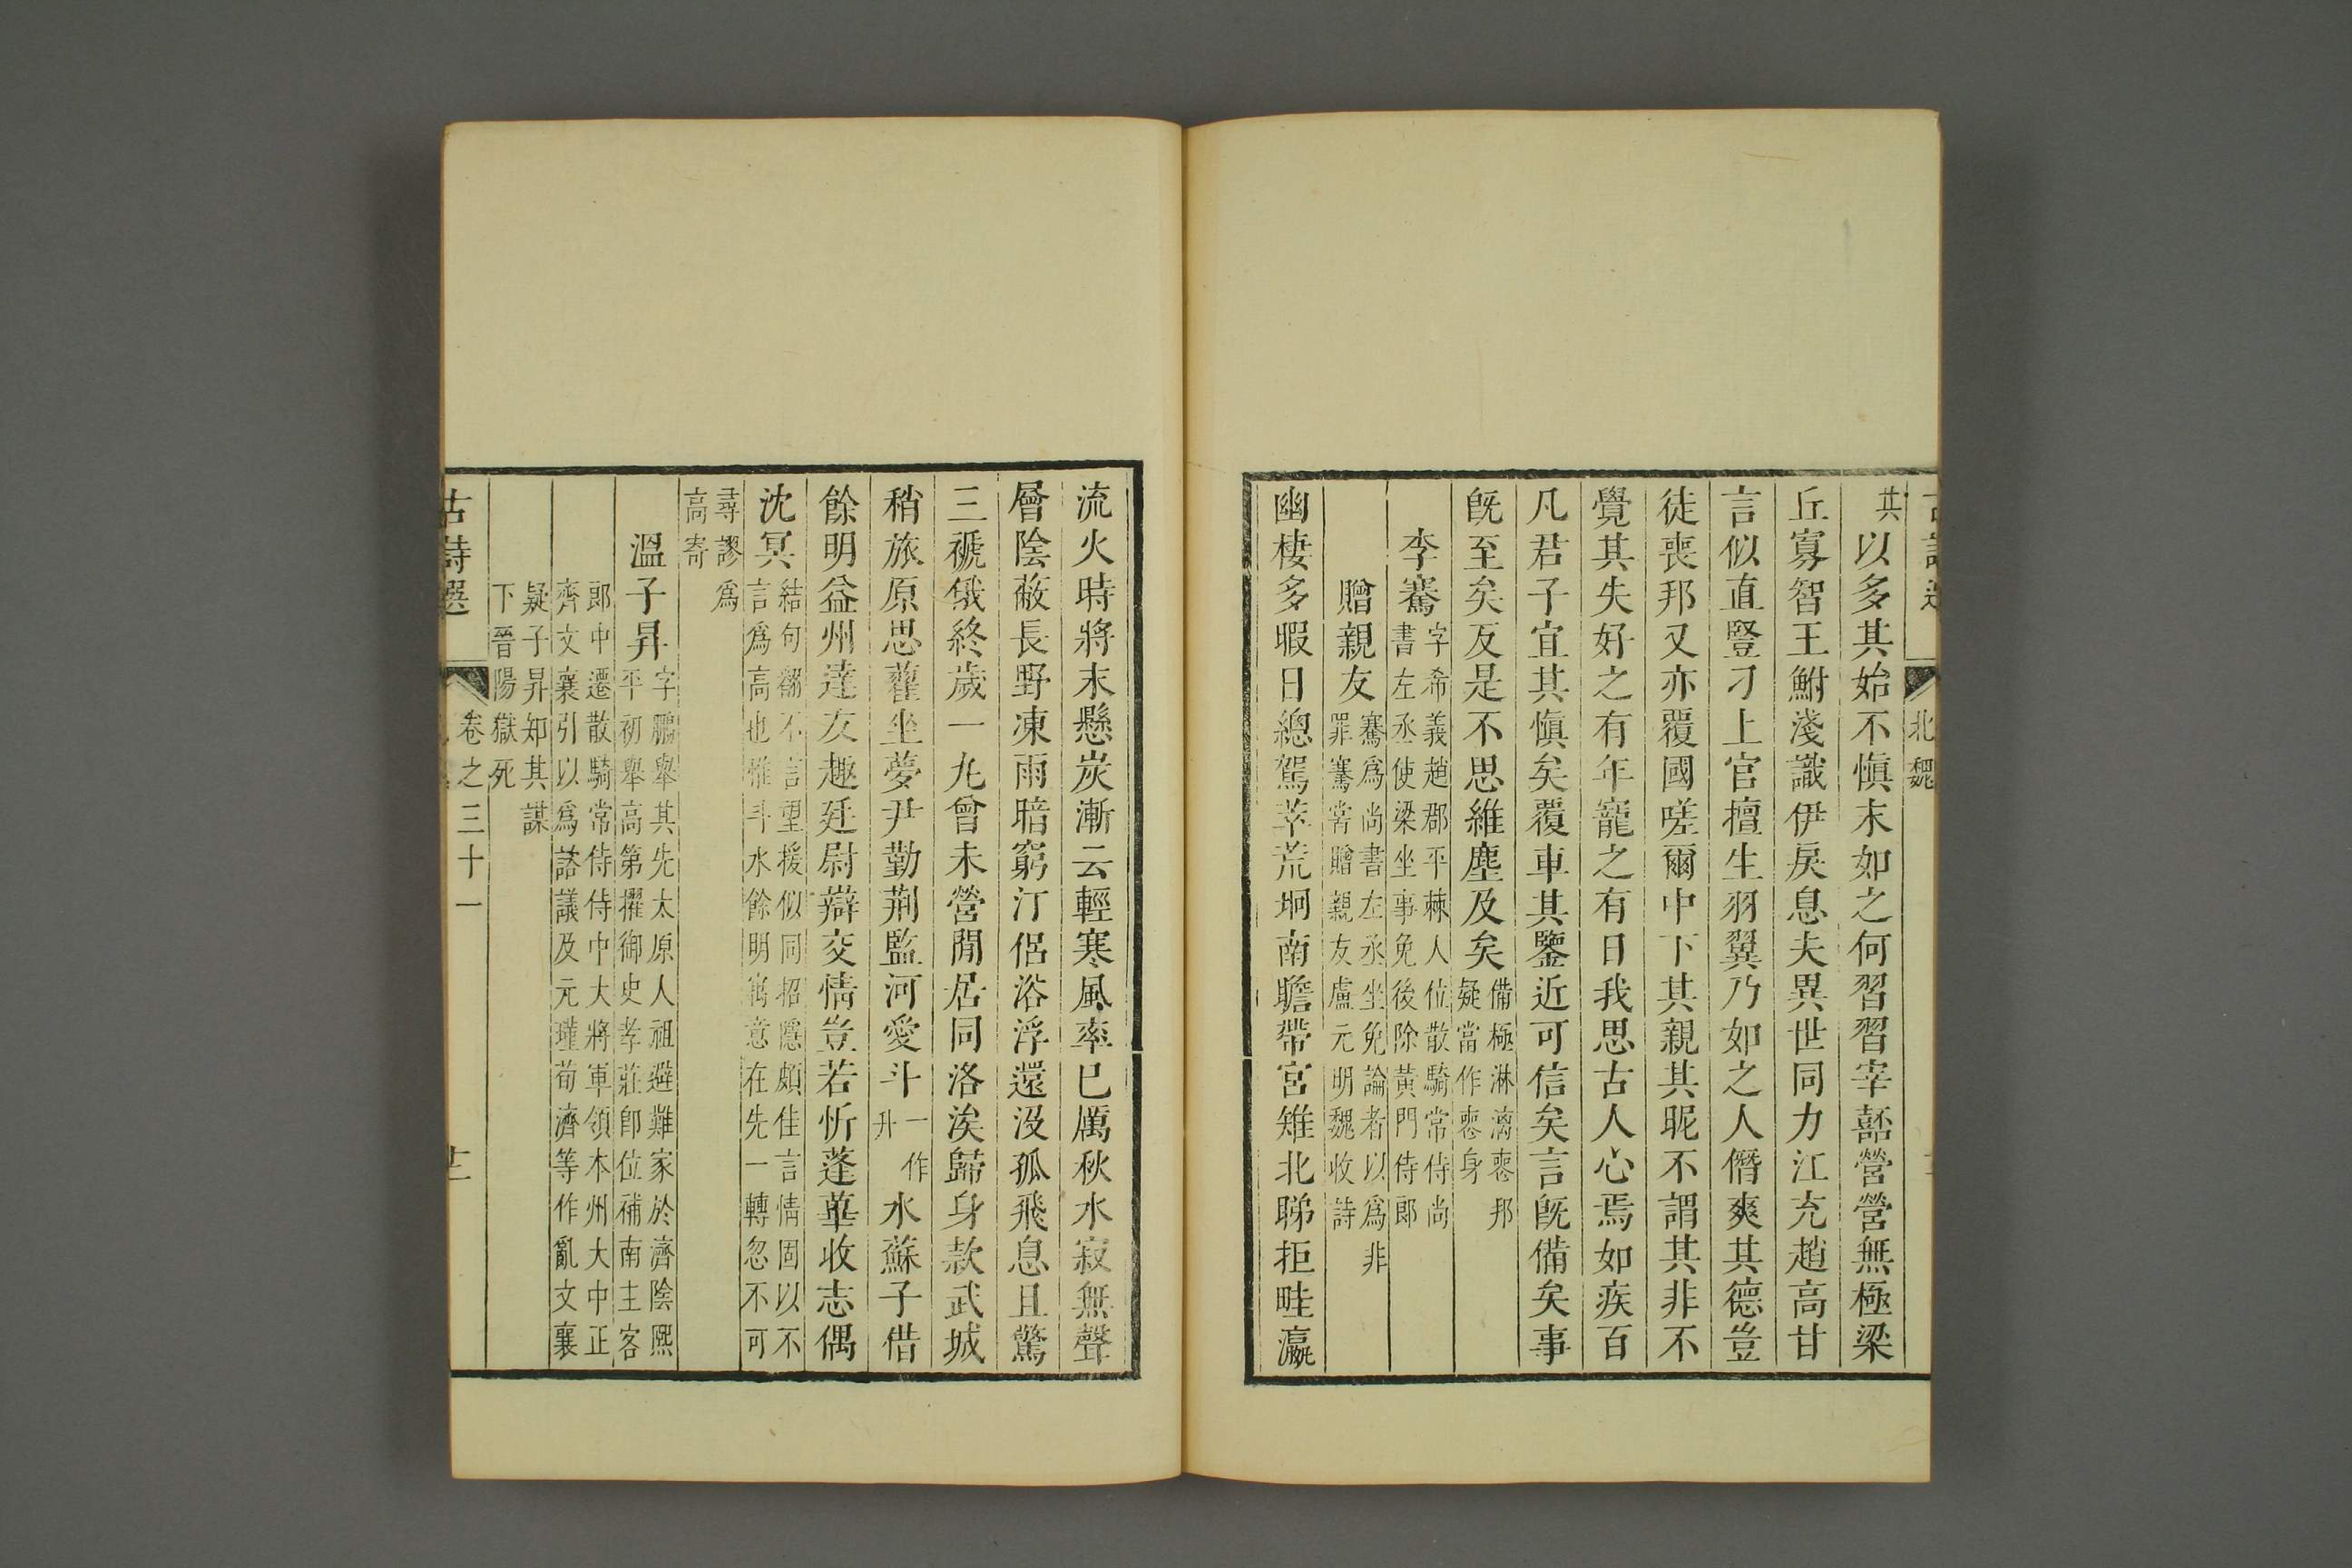 北魏
共以多其始不愼末如之何習習宰嚭營營無極梁
丘寡智王鮒淺識伊戾息夫異世同力江充趙高甘
言似直豎刁上官擅生羽翼乃如之人僭爽其德豈
徒喪邦又亦覆國嗟爾中下其親其昵不謂其非不
覺其失好之有年寵之有日我思古人心焉如疾百
凡君子宜其愼矣覆車其鑒近可信矣言旣備矣事
旣至矣反是不思維塵及矣備極淋漓喪邦
疑當作喪身
李騫字希義趙郡平棘人位散騎常侍尚
書左丞使梁坐事免後除黃門侍郎
贈親友騫爲尚書左丞坐免論者以爲非
罪騫嘗贈親友盧元明魏收詩
幽棲多暇日總駕萃荒坰南瞻帶宮雉北睇拒畦瀛
流火時將末懸炭漸云輕寒風率已厲秋水寂無聲
層陰蔽長野凍雨暗窮汀侶浴浮還沒孤飛息且驚
三褫俄終歲一丸曾未營閒居同洛涘歸身款武城
稍旅原思藋坐夢尹勤荆監河愛斗一作
升水蘇子借
餘明益州達友趣廷尉辯交情豈若忻蓬蓽收志偶
沈冥結句
言爲高也惟斗水餘明寓意在先一轉忽不可
尋謬爲
高寄
溫子昇字鵬舉其先太原人祖避難家於濟陰熙
平初舉高第擢御史孝莊卽位補南主客
郎中遷散騎常侍侍中大將軍領本州大中正
齊文襄引以爲諮議及元瑾荀濟等作亂文襄
疑子昇知其謀
下晉陽獄死
古詩選
卷之三十一